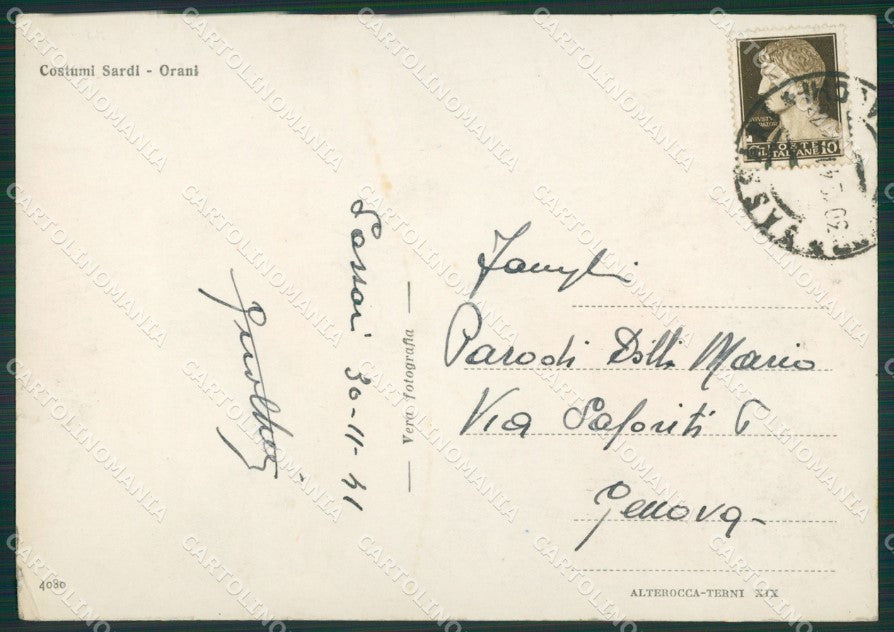 Costumi Sardi - Orani
POSTE
ITALIANE 10
SASSARI
Sassari 30-11-41
Vera fotografia
Parodi Mario
Via Saporiti
Genova
4080
ALTEROCCA-TERNI XIX
CARTOLINOMANIA